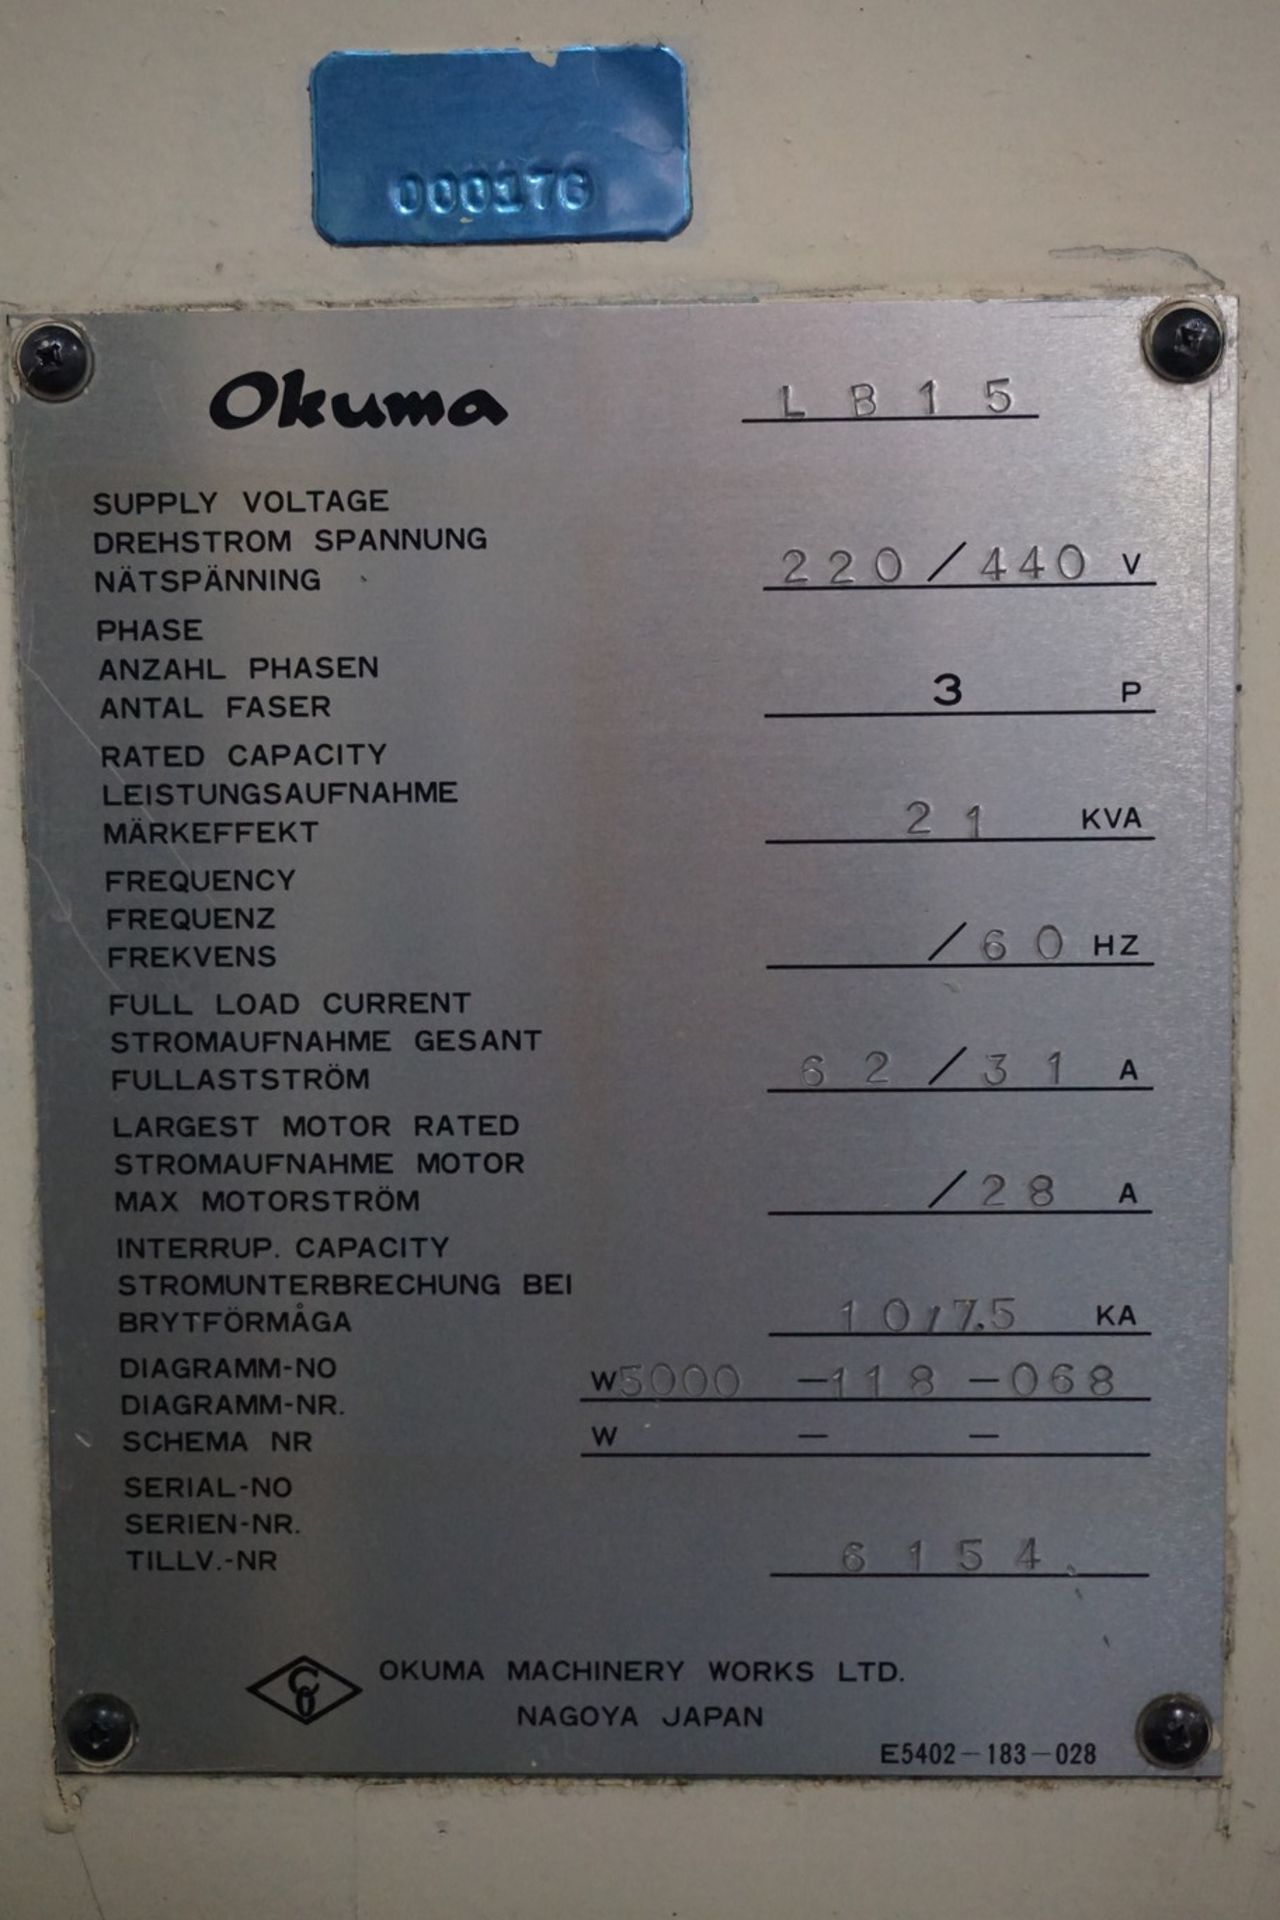 000176
Okuma LB15
SUPPLY VOLTAGE
DREHSTROM SPANNUNG
NÄTSPÄNNING 220/440 V
PHASE
ANZAHL PHASEN
ANTAL FASER 3 P
RATED CAPACITY
LEISTUNGSAUFNAHME
MÄRKEFFEKT 21 KVA
FREQUENCY
FREQUENZ
FREKVENS /60 HZ
FULL LOAD CURRENT
STROMAUFNAHME GESANT
FULLASTSTRÖM 62/31 A
LARGEST MOTOR RATED
STROMAUFNAHME MOTOR
MAX MOTORSTRÖM /28 A
INTERRUP. CAPACITY
STROMUNTERBRECHUNG BEI
BRYTFÖRMÅGA 10/7.5 KA
DIAGRAMM-NO W5000-118-068
DIAGRAMM-NR.
SCHEMA NR W - -
SERIAL-NO
SERIEN-NR.
TILLV.-NR 6154
OKUMA MACHINERY WORKS LTD.
NAGOYA JAPAN
E5402-183-028